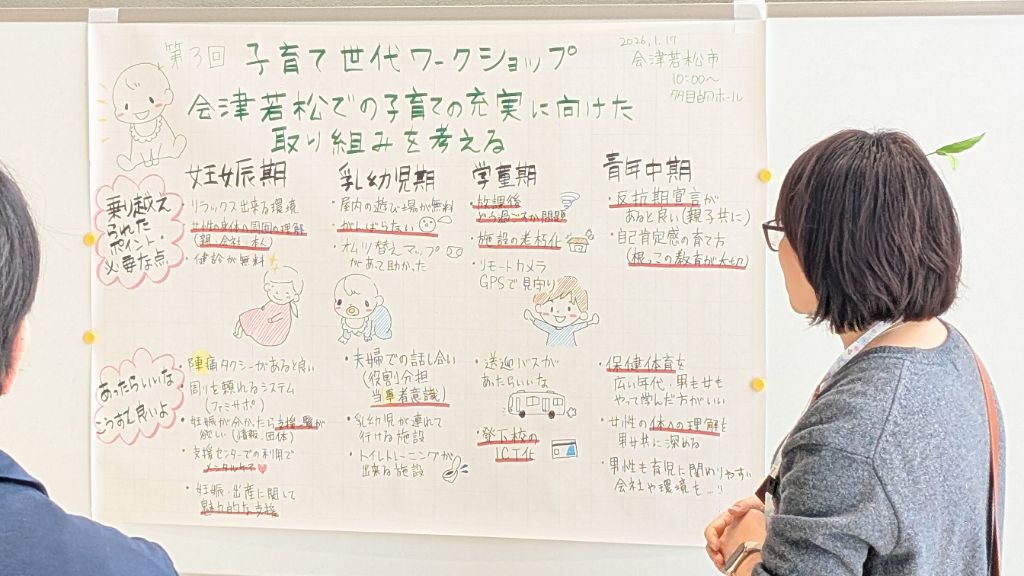 第3回 子育て世代ワークショップ
2026.1.17
会津若松市
10:00〜
多目的ホール
会津若松での子育ての充実に向けた
取り組みを考える
乗り越え
られた
ポイント・
必要な点
妊娠期
リラックス出来る環境
女性の身体の周囲の理解
(親、会社、本人)
・健診が無料
乳幼児期
・屋内の遊び場が無料
がしばらない
・オムツ替えマップ
があって助かった
学童期
・放課後
どう過ごすか問題
・施設の老朽化
・リモートカメラ
GPSで見守り
青年中期
・反抗期宣言が
あると良い(親子共に)
・自己肯定感の育て方
(根っこの教育が大切)
あったらいいな
こうすむ良いよ
・陣痛タクシーがあると良い
周りを頼れるシステム
(ファミサポ)
・妊娠が分かったら支援一覧が
欲しい(情報、団体)
・支援センターでの利用で
メンタルケア
・妊娠・出産に関して
魅力的な支援
・夫婦での話し合い
(役割分担
当事者意識)
・乳幼児が連れて
行ける施設
・トイレトレーニングが
出来る施設
・送迎バスが
あったらいいな
・登下校の
ICT化
・保健体育を
広い年代・男も女も
やって学んだ方がいい
・女性の体への理解を
男女共に深める
・男性も育児に関わりやすい
会社や環境を…!!